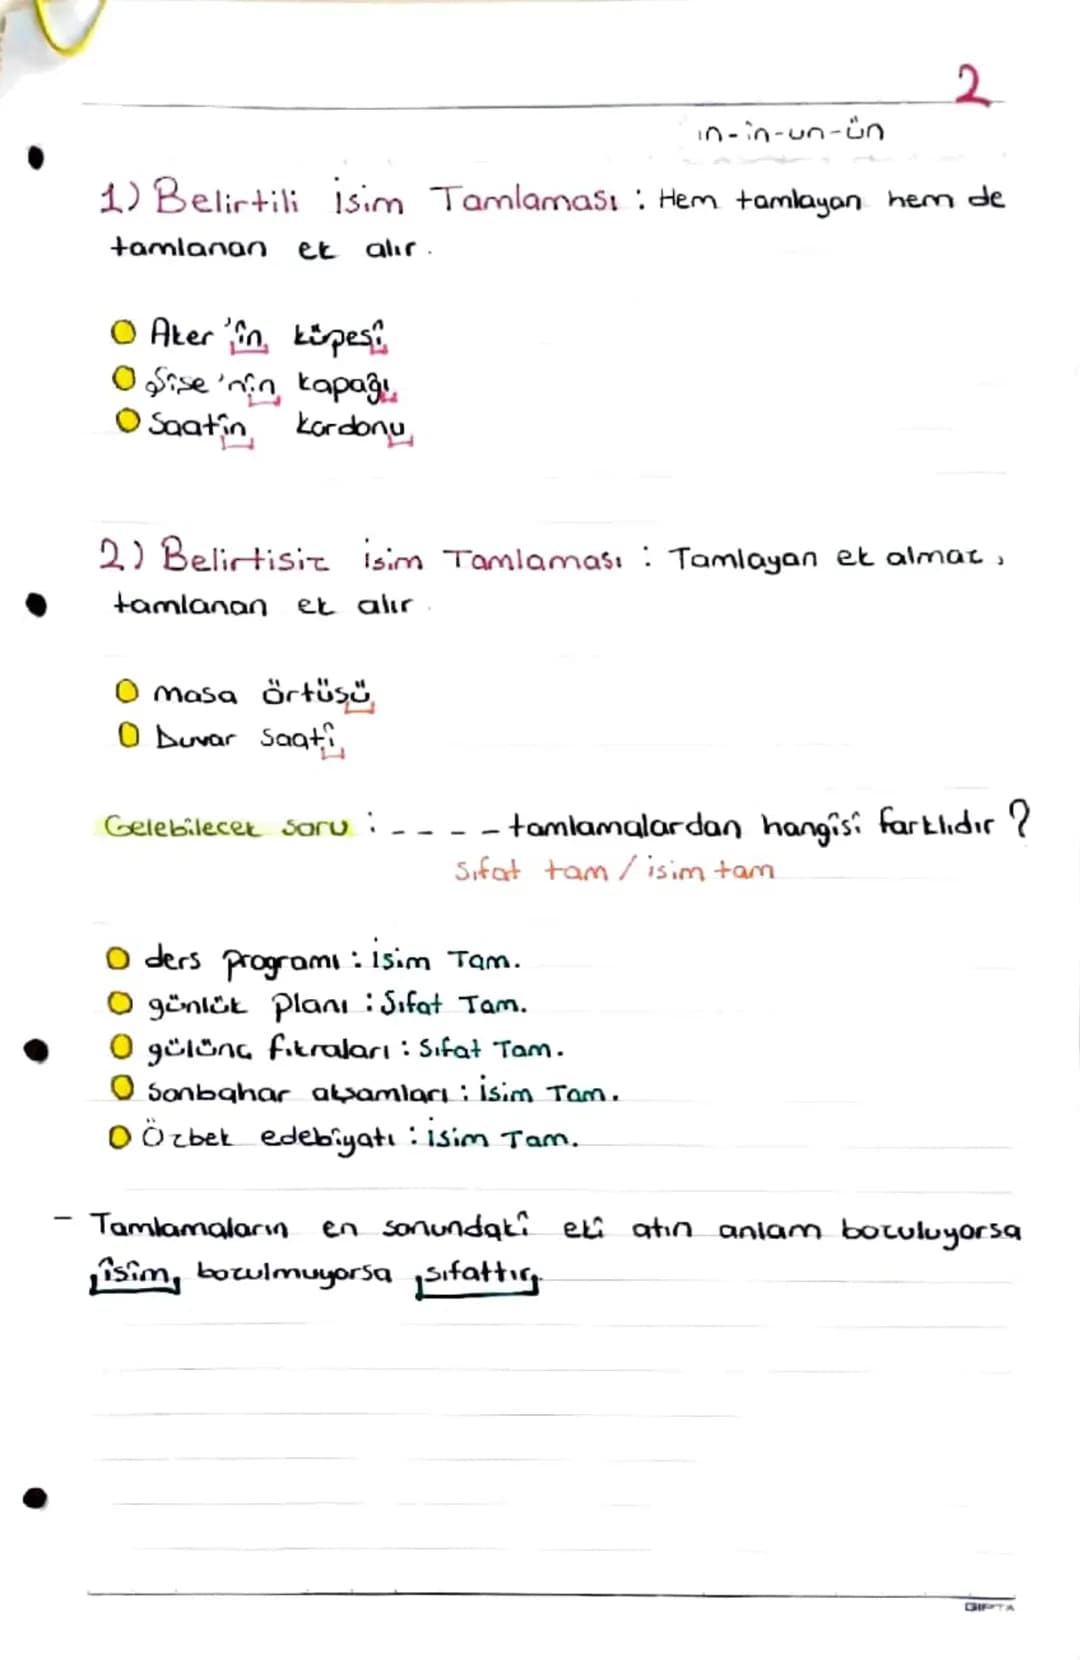 2
ın-in-un-ün
1) Belirtili isim Tamlaması : Hem tamlayan hem de
tamlanan ek alır.
Aker'in küpesi
Şise'nin kapağı
Saatin kordonu
2) Belirtisiz isim Tamlaması : Tamlayan ek almaz,
tamlanan ek alır
masa örtüsü
Duvar saati
Gelebilecek soru : - - - - tamlamalardan hangisi farklıdır ?
Sıfat tam / isim tam
ders programı : isim Tam.
günlük planı : Sıfat Tam.
gülünç fıkraları : Sıfat Tam.
Sonbahar akşamları : isim Tam.
Özbek edebiyatı : isim Tam.
- Tamlamaların en sonundaki eki atın anlam bozuluyorsa
isim, bozulmuyorsa sıfattır.
GIPTA